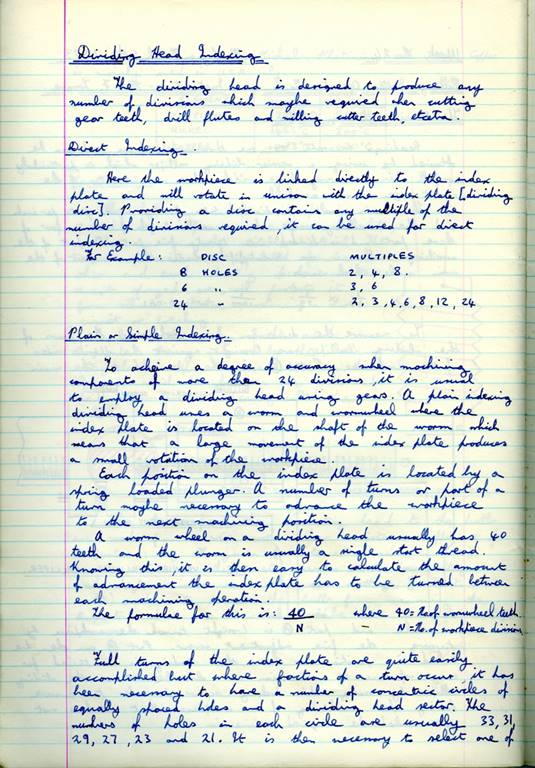 Dividing Head Indexing
The dividing head is designed to produce any
number of divisions which maybe required when cutting
gear teeth, drill flutes and milling cutter teeth, etcetra.
Direct Indexing.
Here the workpiece is linked directly to the index
plate and will rotate in unison with the index plate [dividing
disc]. Providing a disc contains any multiple of the
number of divisions required, it can be used for direct
indexing.
For Example: DISC MULTIPLES
8 HOLES 2, 4, 8.
6 " 3, 6
24 " 2, 3, 4, 6, 8, 12, 24
Plain or Simple Indexing.
To acheive a degree of accuracy when machining
components of more than 24 divisions, it is usual
to employ a dividing head using gears. A plain indexing
dividing head uses a worm and wormwheel where the
index plate is located on the shaft of the worm which
means that a large movement of the index plate produces
a small rotation of the workpiece.
Each position on the index plate is located by a
spring loaded plunger. A number of turns or part of a
turn maybe necessary to advance the workpiece
to the next machining position.
A worm wheel on a dividing head usually has 40
teeth and the worm is usually a single start thread.
Knowing this, it is then easy to calculate the amount
of advancement the index plate has to be turned between
each machining operation.
The formulae for this is: 40 where 40 = No. of wormwheel teeth.
N – N = No. of workpiece division
Full turns of the index plate are quite easily
accomplished but where fractions of a turn occur, it has
been necessary to have a number of concentric circles of
equally spaced holes and a dividing head sector. The
numbers of holes in each circle are usually 33, 31,
29, 27, 23 and 21. It is then necessary to select one of